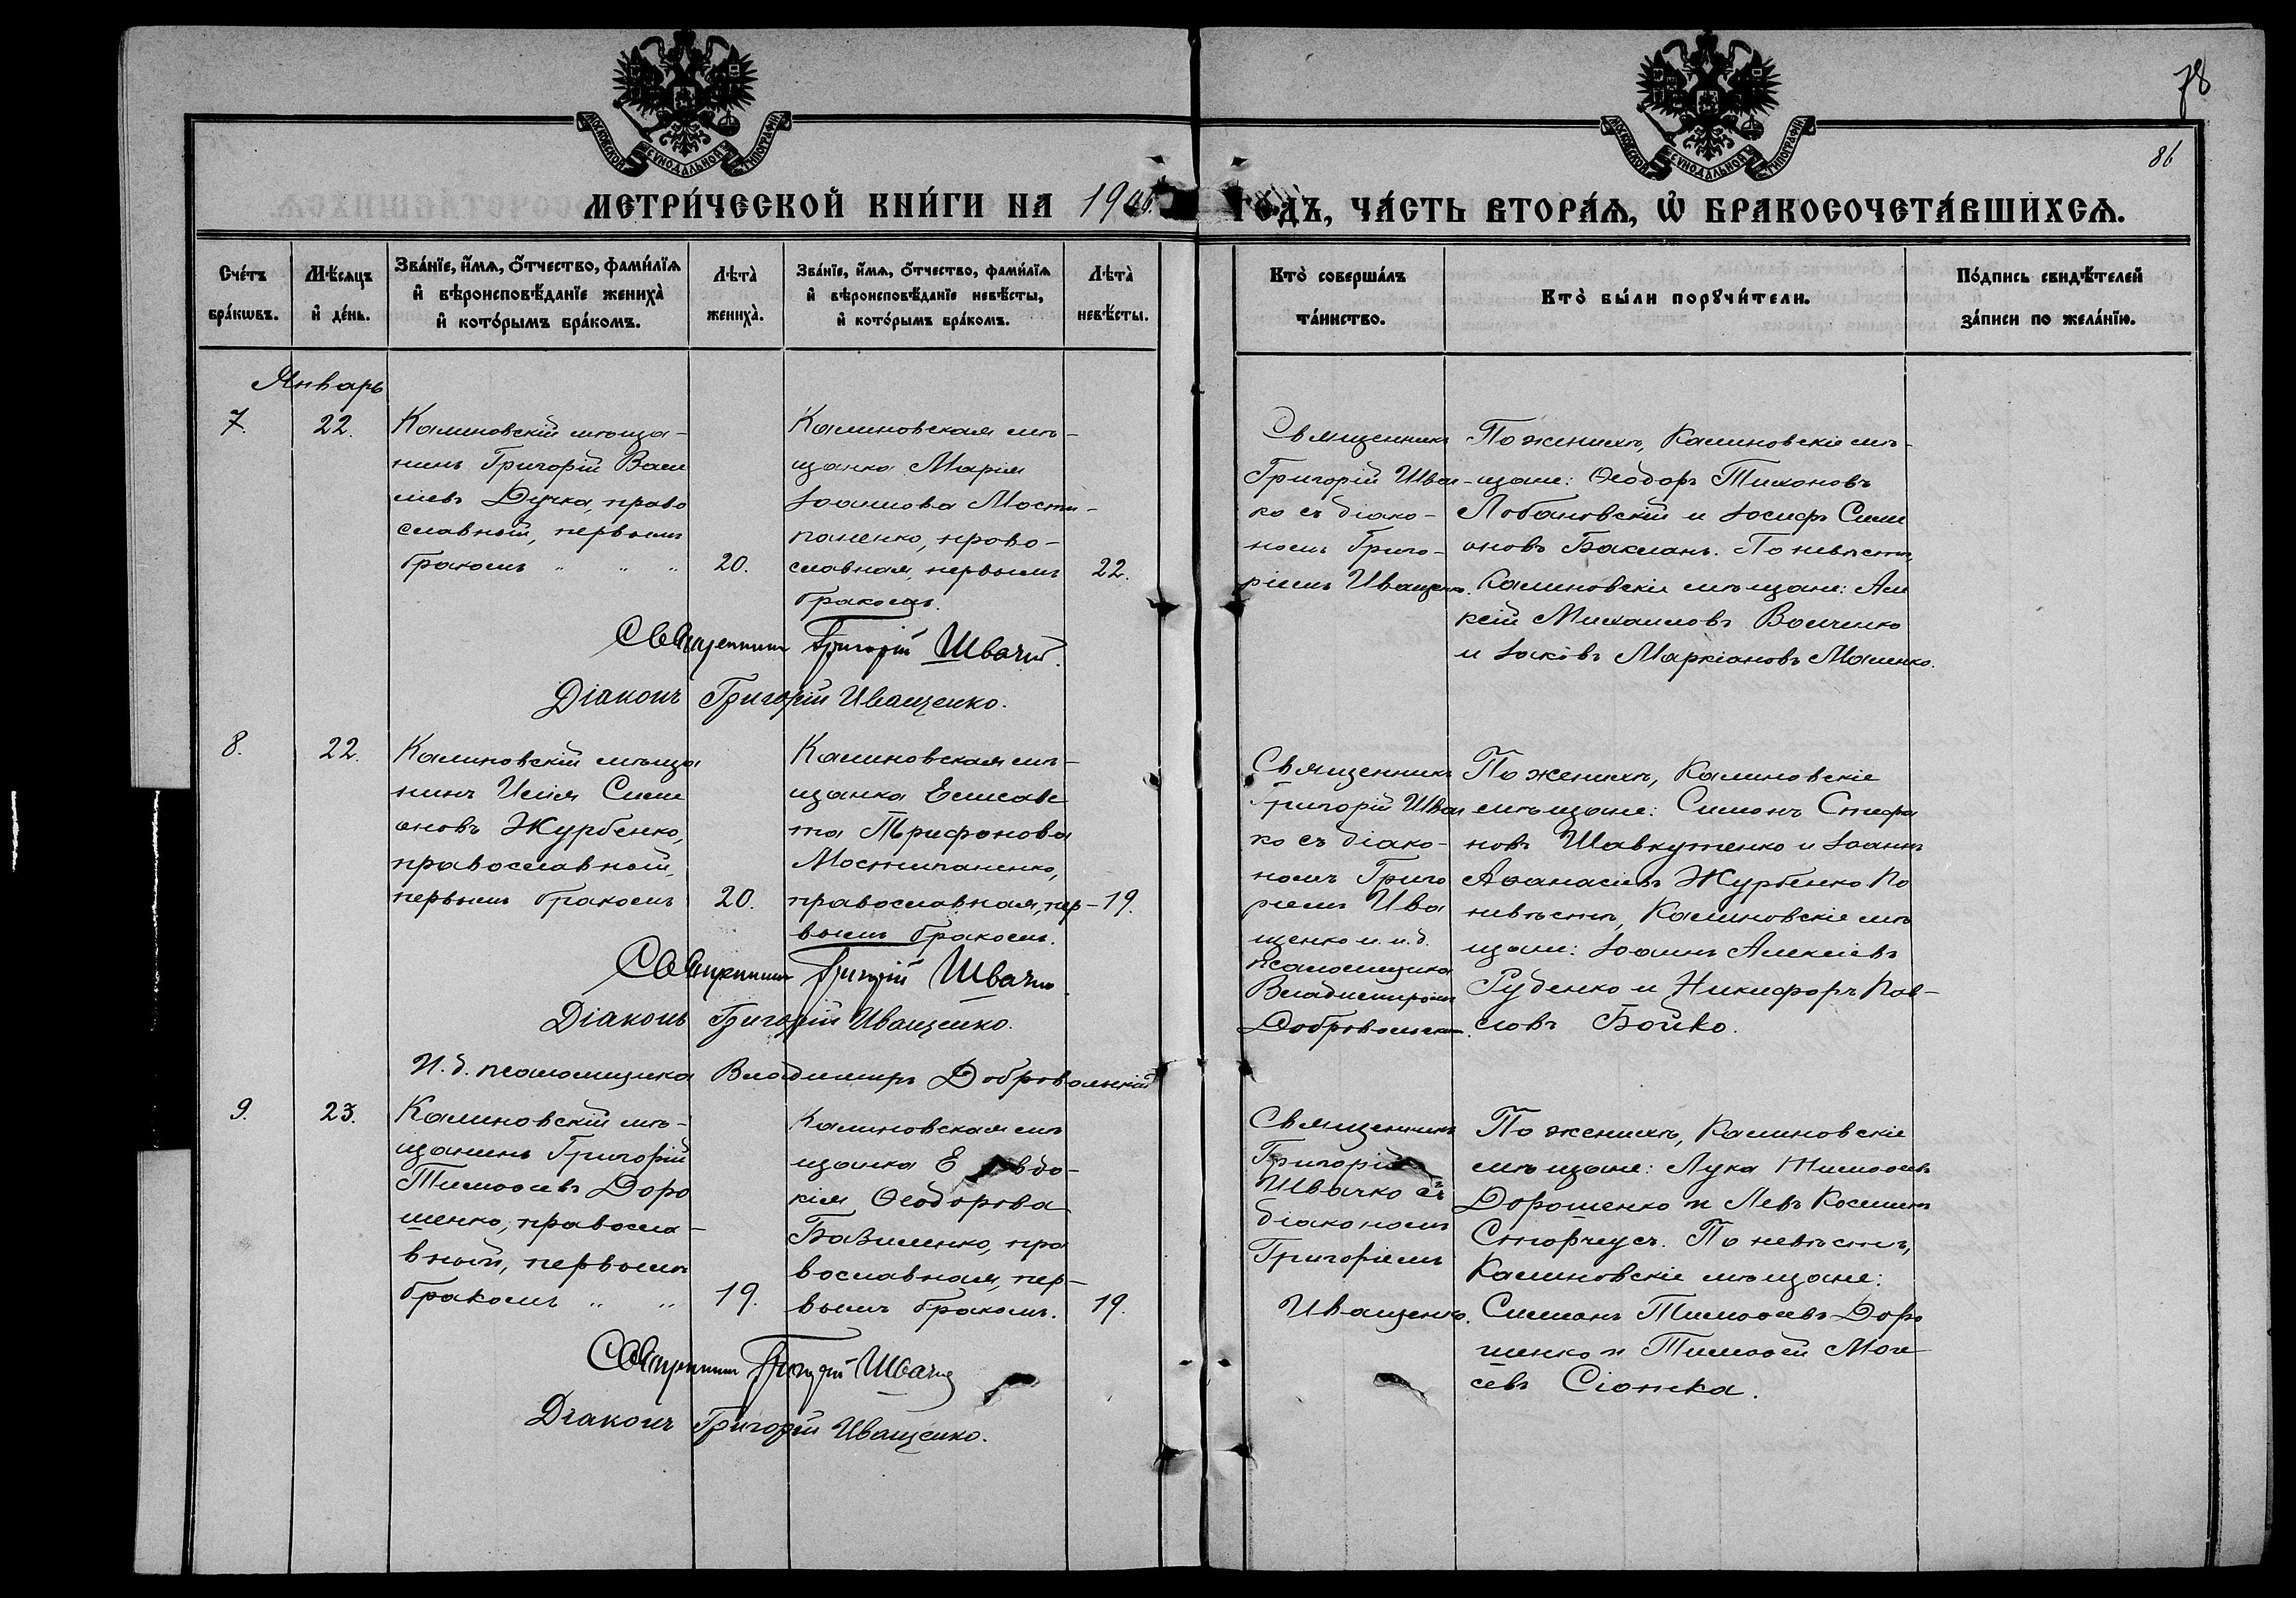 78
86
МОСКОВСКОЙ СѴНОДАЛЬНОЙ ТИПОГРАФІИ
МОСКОВСКОЙ СѴНОДАЛЬНОЙ ТИПОГРАФІИ
МЕТРИ́ЧЕСКОЙ КНИ́ГИ НА 190
ГО́ДЪ, ЧА́СТЬ ВТОРА́Ѧ, Ѡ҆ БРАКОСОЧЕТА́ВШИХСѦ.
Сче́тъ бра́кѡвъ.
Мѣ́сѧцъ и҆ де́нь.
Зва́нїе, и҆́мѧ, ѻ҆́тчество, фами́лїѧ
и҆ вѣроисповѣ́данїе жениха̀
и҆ кото́рымъ бра́комъ.
Лѣта̀ жениха̀.
Зва́нїе, и҆́мѧ, ѻ҆́тчество, фами́лїѧ
и҆ вѣроисповѣ́данїе невѣ́сты,
и҆ кото́рымъ бра́комъ.
Лѣта̀ невѣ́сты.
Кто̀ соверша́лъ
та́инство.
Кто̀ бы́ли порꙋчи́тели.
По́дпись свидѣ́телей
за́писи по жела́нїю.
Январь
7.
22.
Калиновскій мѣща-
нинъ Григорій Васи
ліевъ Дучка, право
славный, первымъ
бракомъ " " "
20.
Калиновская мѣ-
щанка Марія
Іоаннова Мости-
паненко, право-
славная, первымъ
бракомъ.
22.
Священникъ
Григорій Швач-
ко съ діако-
номъ Григо-
ріемъ Иващенко.
По женихѣ, Калиновскіе мѣ-
щане: Ѳеодоръ Тихоновъ
Лобановскій и Іосифъ Симе
оновъ Бакланъ. По невѣстѣ,
Калиновскіе мѣщане:
Михаиловъ
и Іаковъ Маркіановъ
Священникъ Григорій Швачко.
Діаконъ Григорій Иващенко.
8.
22.
Калиновскій мѣща
нинъ Илія Симе
оновъ Журбенко,
православный,
первымъ бракомъ
20.
Калиновская мѣ-
щанка Елисаве
та Трифонова
Мостипаненко,
православная, пер-
вымъ бракомъ.
19.
Священникъ
Григорій Швач
ко съ діако-
номъ Григо
ріемъ Ива
щенко и и. д.
псаломщика
Владиміромъ
Добровольским.
По женихѣ, Калиновскіе
мѣщане: Симонъ Стефа
новъ Шавкутенко и Іоаннъ
Аѳанасіевъ Журбенко. По
невѣстѣ, Калиновскіе мѣ
щане: Іоаннъ Алексіевъ
Руденко и Никифоръ Пав-
ловъ Бойко.
Священникъ Григорій Швачко.
Діаконъ Григорій Иващенко.
И. д. псаломщика Владимиръ Добровольскій
9.
23.
Калиновскій мѣ-
щанинъ Григорій
Тимоѳеевъ Доро
шенко, правосла-
вный, первымъ
бракомъ " "
19.
Калиновская мѣ
щанка Е вдо-
кія Ѳеодорова
Базиленко, пра
вославная, пер-
вымъ бракомъ.
19.
Священникъ
Григорій
Швачко съ
діакономъ
Григоріемъ
Иващенко.
По женихѣ, Калиновскіе
мѣщане: Лука Тимоѳеевъ
Дорошенко и Левъ Косминъ
Сторчеусъ. По невѣстѣ,
Калиновскіе мѣщане:
Симеонъ Тимоѳеевъ Доро
шенко и Тимоѳей Мои
сеевъ Сіонска.
Священникъ Григорій Швачко
Діаконъ Григорій Иващенко.